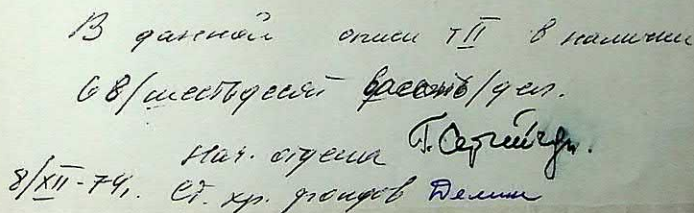 В данной описи т II в наличии
68/шестьдесят восемь/дел.
Нач. отдела
8/XII-74г. Ст. хр. фондов